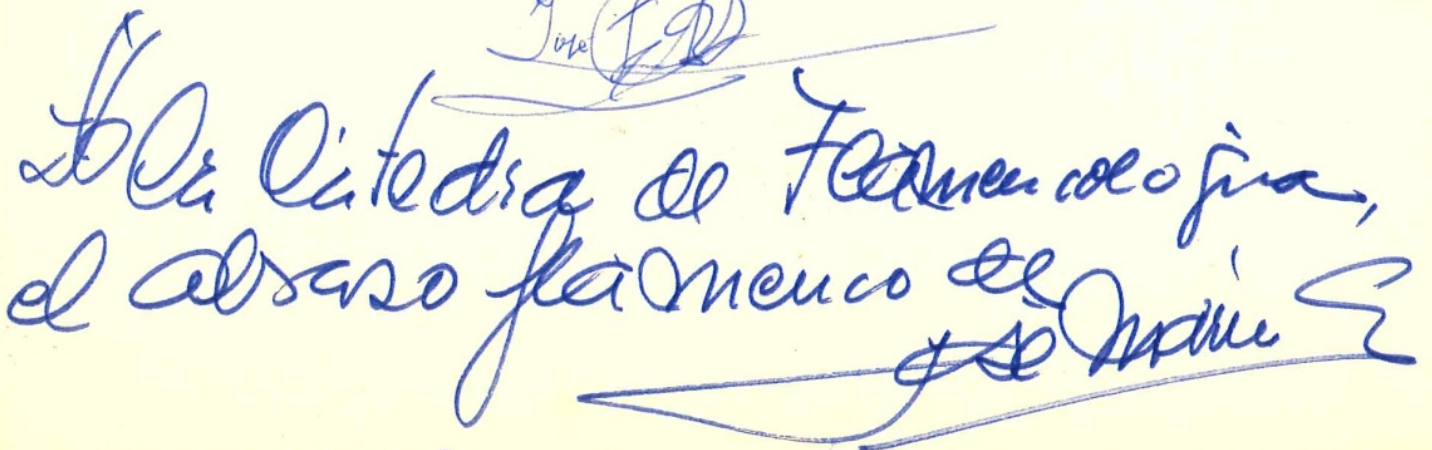 José
A la Cátedra de Flamencología,
el abrazo flamenco de
José Marín